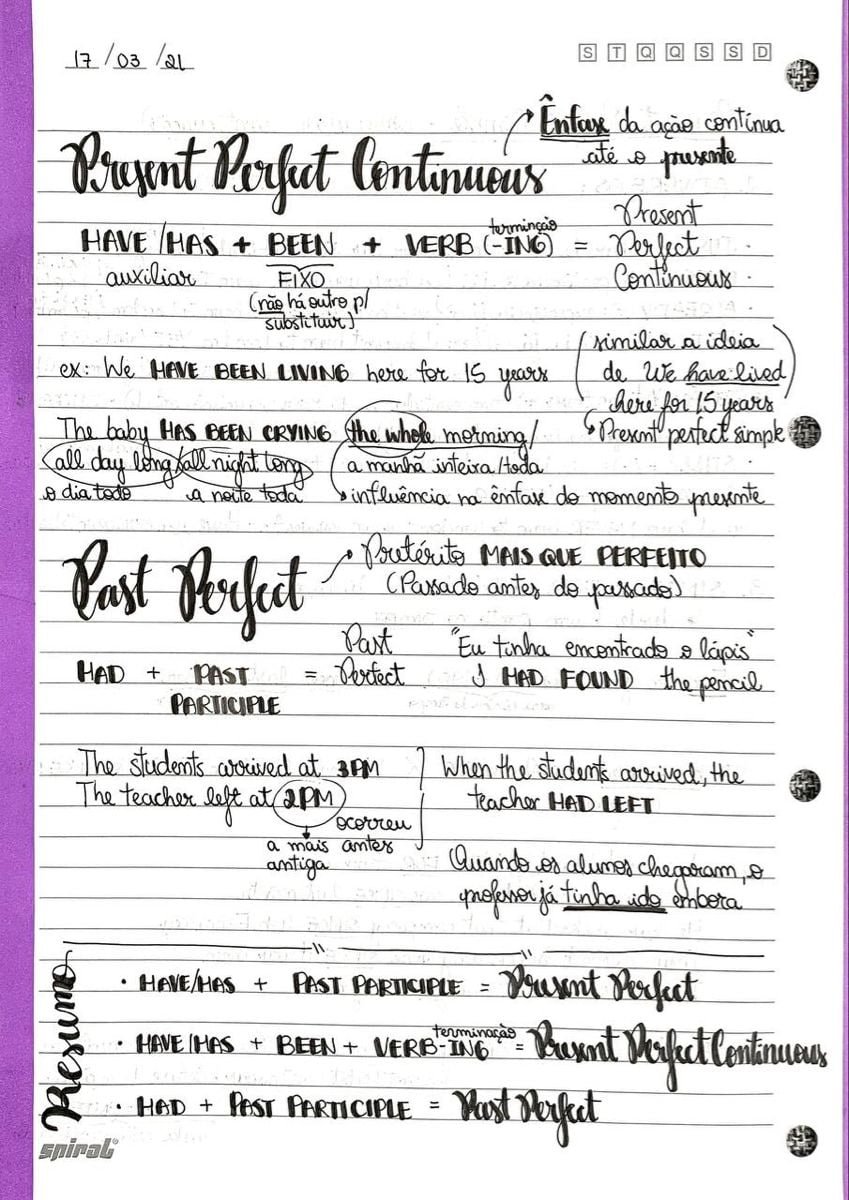 17/03/21
S T Q Q S S D
Ênfase da ação contínua
até o presente
Present Perfect Continuous
HAVE/HAS + BEEN + VERB (-ING) = Present Perfect Continuous
terminção
auxiliar
FIXO
(não há outro p/
substituir)
ex: We HAVE BEEN LIVING here for 15 years
(similar a ideia
de We have lived
here for 15 years)
Present perfect simple
The baby HAS BEEN CRYING the whole morning/
all day long/all night long
a manhã inteira/toda
o dia todo
a noite toda
influência na ênfase do momento presente
Past Perfect
Pretérito MAIS QUE PERFEITO
(Passado antes do passado)
HAD + PAST PARTICIPLE = Past Perfect
"Eu tinha encontrado o lápis"
I HAD FOUND the pencil
The students arrived at 3PM
The teacher left at 2PM
ocorreu
antes
a mais
antiga
When the students arrived, the
teacher HAD LEFT
Quando os alunos chegaram, o
professor já tinha ido embora
Resumo
• HAVE/HAS + PAST PARTICIPLE = Present Perfect
terminação
• HAVE/HAS + BEEN + VERB-ING = Present Perfect Continuous
• HAD + PAST PARTICIPLE = Past Perfect
spiral®